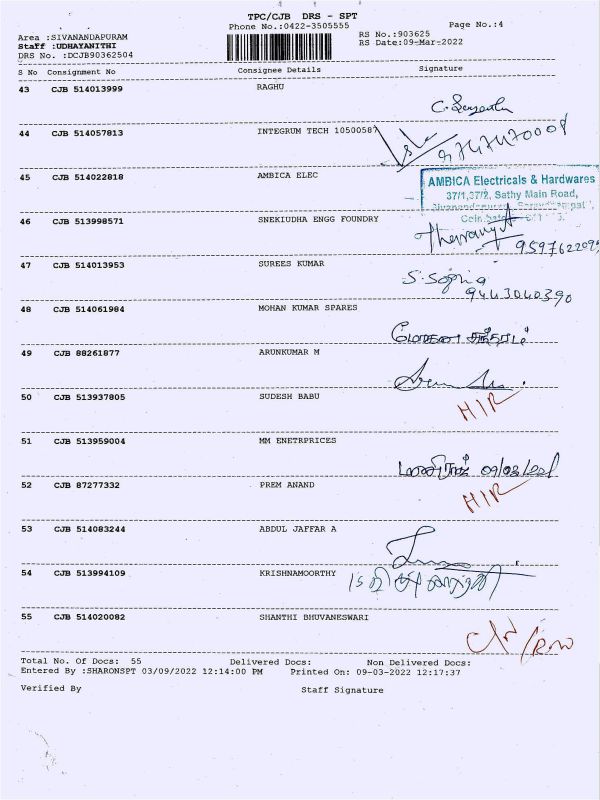 TPC/CJB DRS - SPT
Phone No.:0422-3505555
Page No.:4
Area :SIVANANDAPURAM
RS No.:903625
Staff :UDHAYANITHI
RS Date:09-Mar-2022
DRS No. :DCJB90362504
S No Consignment No Consignee Details Signature
43 CJB 514013999 RAGHU
44 CJB 514057813 INTEGRUM TECH 10500587
45 CJB 514022818 AMBICA ELEC
AMBICA Electricals & Hardwares
37/1,37/2, Sathy Main Road,
46 CJB 513998571 SNEKIUDHA ENGG FOUNDRY
47 CJB 514013953 SUREES KUMAR
S. Sopria
9443040390
48 CJB 514061984 MOHAN KUMAR SPARES
49 CJB 88261877 ARUNKUMAR M
50 CJB 513937805 SUDESH BABU
HIR
51 CJB 513959004 MM ENETRPRICES
52 CJB 87277332 PREM ANAND
HIR
53 CJB 514083244 ABDUL JAFFAR A
54 CJB 513994109 KRISHNAMOORTHY
55 CJB 514020082 SHANTHI BHUVANESWARI
Total No. Of Docs: 55 Delivered Docs: Non Delivered Docs:
Entered By :SHARONSPT 03/09/2022 12:14:00 PM Printed On: 09-03-2022 12:17:37
Verified By Staff Signature